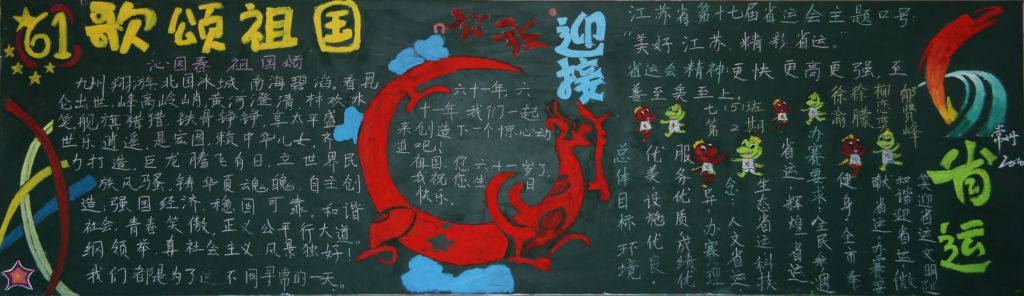 61 歌颂祖国
沁园春 祖国颂
九州翔游,北国冰城,南海碧滔。看昆
仑出世,峰高岭峭,黄河澄清,林欢水
笑,舰旗猎猎,铁骨铮铮,享太平盛
世乐逍遥。是宏图,赖中华儿女,齐
力打造。巨龙腾飞有日,立世界民
族风骚。铸华夏魂魄,自主创
造,强国经济,稳固可靠。和谐
社会,青春笑傲,正义公平行大道。
纲领举,尊社会主义,风景独好!
我们都是为了这不同寻常的一天。
六十一年,六
十一年,我们一起
来创造下一个惊心动
道吧!
祖国,您六十一岁了,
我祝您生日
快乐。
迎接
省运
江苏省第十七届省运会主题口号:
“美好江苏,精彩省运。”
省运会精神:更快更高更强,至
善至美至上
七(5)班
第2期
徐荷
徐腾
柳恋恋
郁贤峰
办赛要求:全民参与
省运,辉煌省运
生态省运,科技
人文省运
服务优质,成绩优
优美,设施优良,
总体目标:环境
健身,全市奉
献省运
和谐迎省运